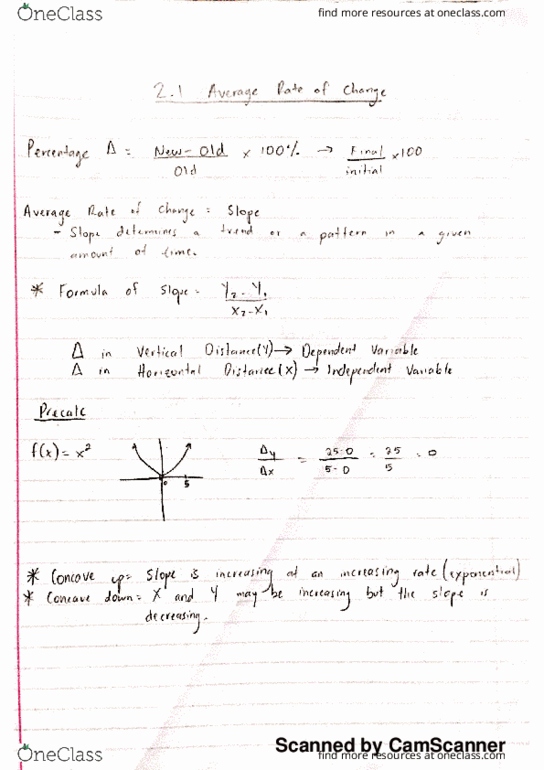 OneClass
find more resources at oneclass.com
2.1 Average Rate of Change
Percentage Δ = New - Old / Old × 100% → Final / initial ×100
Average Rate of Change = Slope
- Slope determines a trend or a pattern in a given
amount of time.
* Formula of Slope = Y₂ - Y₁ / X₂ - X₁
Δ in Vertical Distance(Y) → Dependent Variable
Δ in Horizontal Distance(X) → Independent Variable
Precalc
f(x) = x²
0 5
Δy / Δx = 25-0 / 5-0 = 25 / 5 = 0
* Concave up = Slope is increasing at an increasing rate (exponential)
* Concave down = X and Y may be increasing but the slope is
decreasing.
Scanned by CamScanner
OneClass
find more resources at oneclass.com